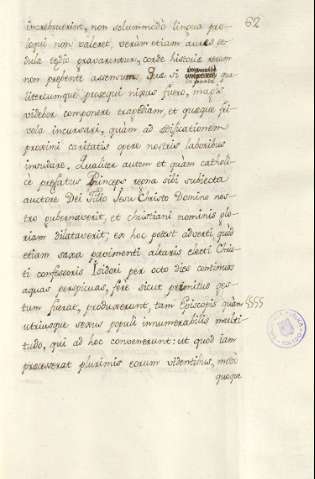 62
increbuerint, non solummodo lingua pro-
loqui non valeret, verùm etiam aures se-
dula tedio gravarentur, corde historiæ rerum
non præbente assensum. Quæ si
litterisumque prosequi nixus fuero, magis
videbor componere tragœdiam, et quæque fri-
vola incursare, quàm ad ædificationem
proximi caritatis opere nostris laboribus
insudare. Qualiter autem et quàm catholi-
cè præfatus Princeps regna sibi subjecta
auctore Dei Filio Jesu Christo Domino nos-
tro gubernaverit, et christiani nominis glo-
riam dilataverit; ex hoc potest adverti, quod
etiam saxa pavimenti altaris electi Chris-
ti confessoris Isidori per octo dies continuos
aquas perspicuas, ferè sicut primitus ges-
tum fuerat, produxerunt, tam Episcopis quàm §§§§
utriusque sexus populi innumerabilis multi-
tudo, qui ad hoc convenerunt: ut quod jam
processerat plurimis eorum videntibus, modo
quoque